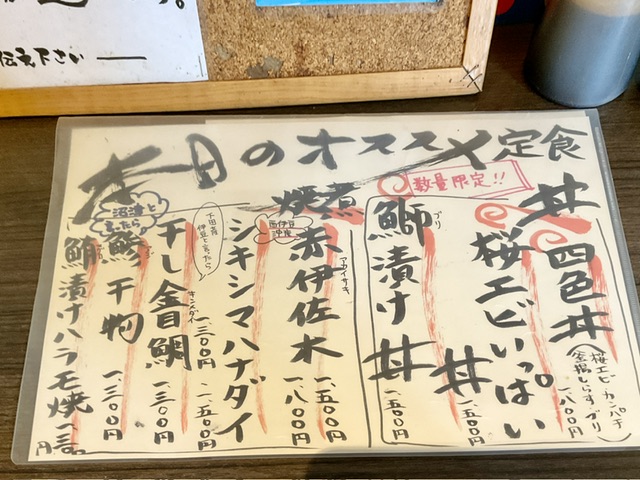 伝え下さい
本日のオススメ定食
数量限定!!
丼
四色丼
(桜エビ カンパチ
釜揚しらす ブリ)
一、八〇〇円
桜エビいっぱい丼
一、五〇〇円
鰤漬け丼
ブリ
一、五〇〇円
煮
焼
赤伊佐木
アカイサキ
西伊豆
一、五〇〇円
一、八〇〇円
シキシマハナダイ
一、五〇〇円
下田産
伊豆と言ったら
干し金目鯛
キンメダイ
一、三〇〇円
一、三〇〇円
沼津と
言ったら
鯵干物
一、三〇〇円
鮪漬けハラモ焼